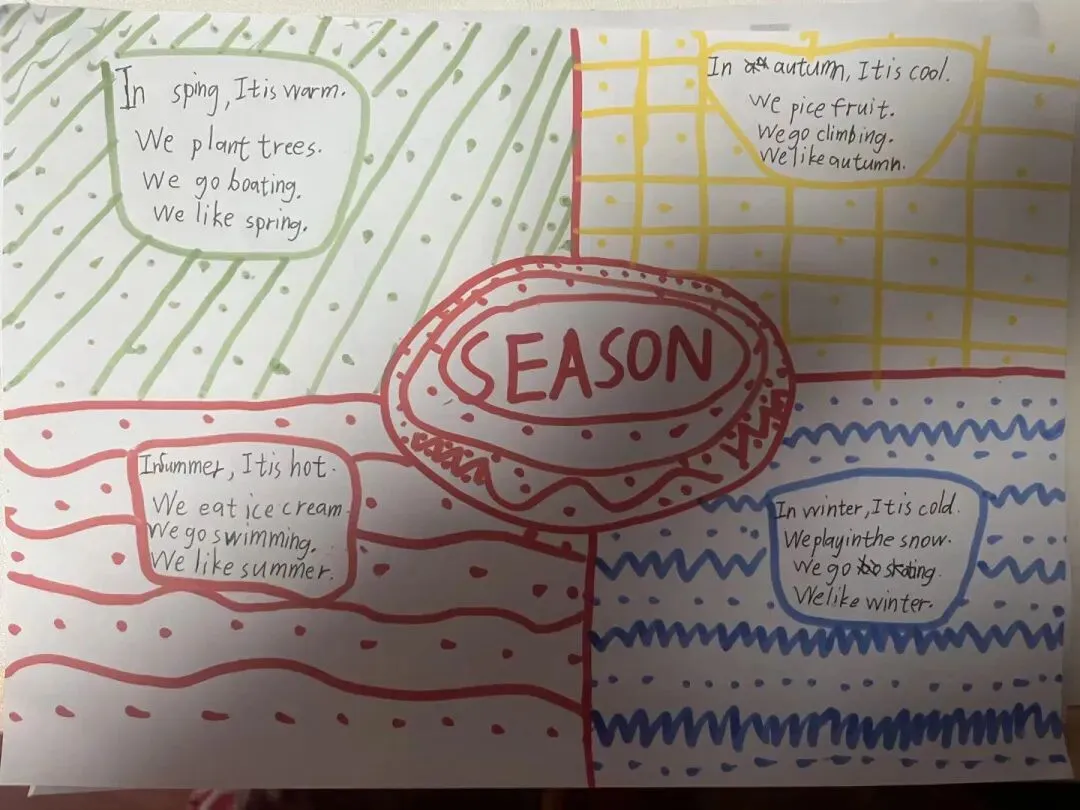 In sping, Itis warm.
We plant trees.
We go boating.
We like spring.
In autumn, Itis cool.
We pice fruit.
We go climbing.
We like autumn.
SEASON
In summer, Itis hot.
We eat ice cream
We go swimming.
We like summer.
In winter, Itis cold.
We play in the snow.
We go skating.
We like winter.